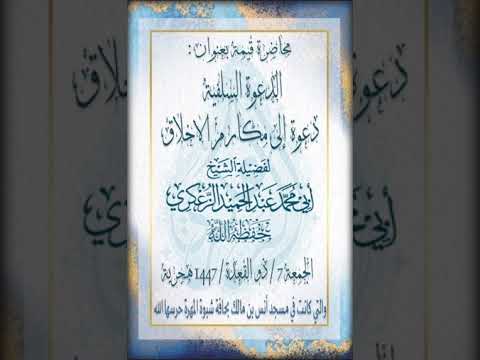 محاضرة قيمة بعنوان :
الدعوة السلفية
دعوة إلى مكارم الأخلاق
لفضيلة الشيخ
أبي محمد عبد الحميد الزعكري
حفظه الله
الجمعة 7/ ذو القعدة / 1447 هجرية
والتي كانت في مسجد أنس بن مالك بحافة شبوة المهرة حرسها الله